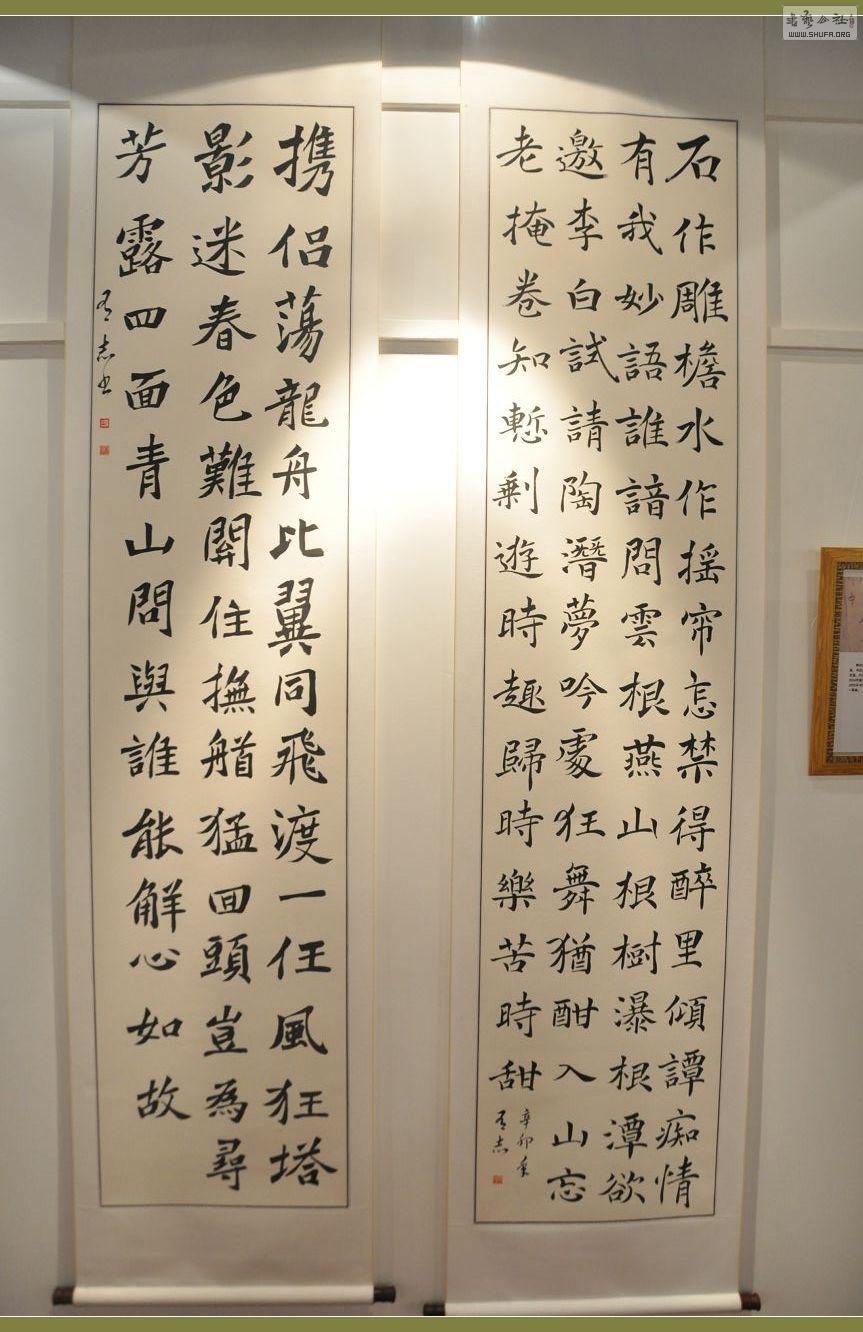 石作雕檐水作摇帘忘禁得醉里傾譚痴情
有我妙語誰諳問雲根燕山根樹瀑根潭欲
邀李白試請陶潛夢吟處狂舞猶酣入山忘
老掩卷知慙剩遊時趣歸時樂苦時甜
辛卯夏
有志
携侣蕩龍舟比翼同飛渡一任風狂塔
影迷春色難關住撫艏猛回頭豈為尋
芳露四面青山問與誰能解心如故
有志书
WWW.SHUFA.ORG